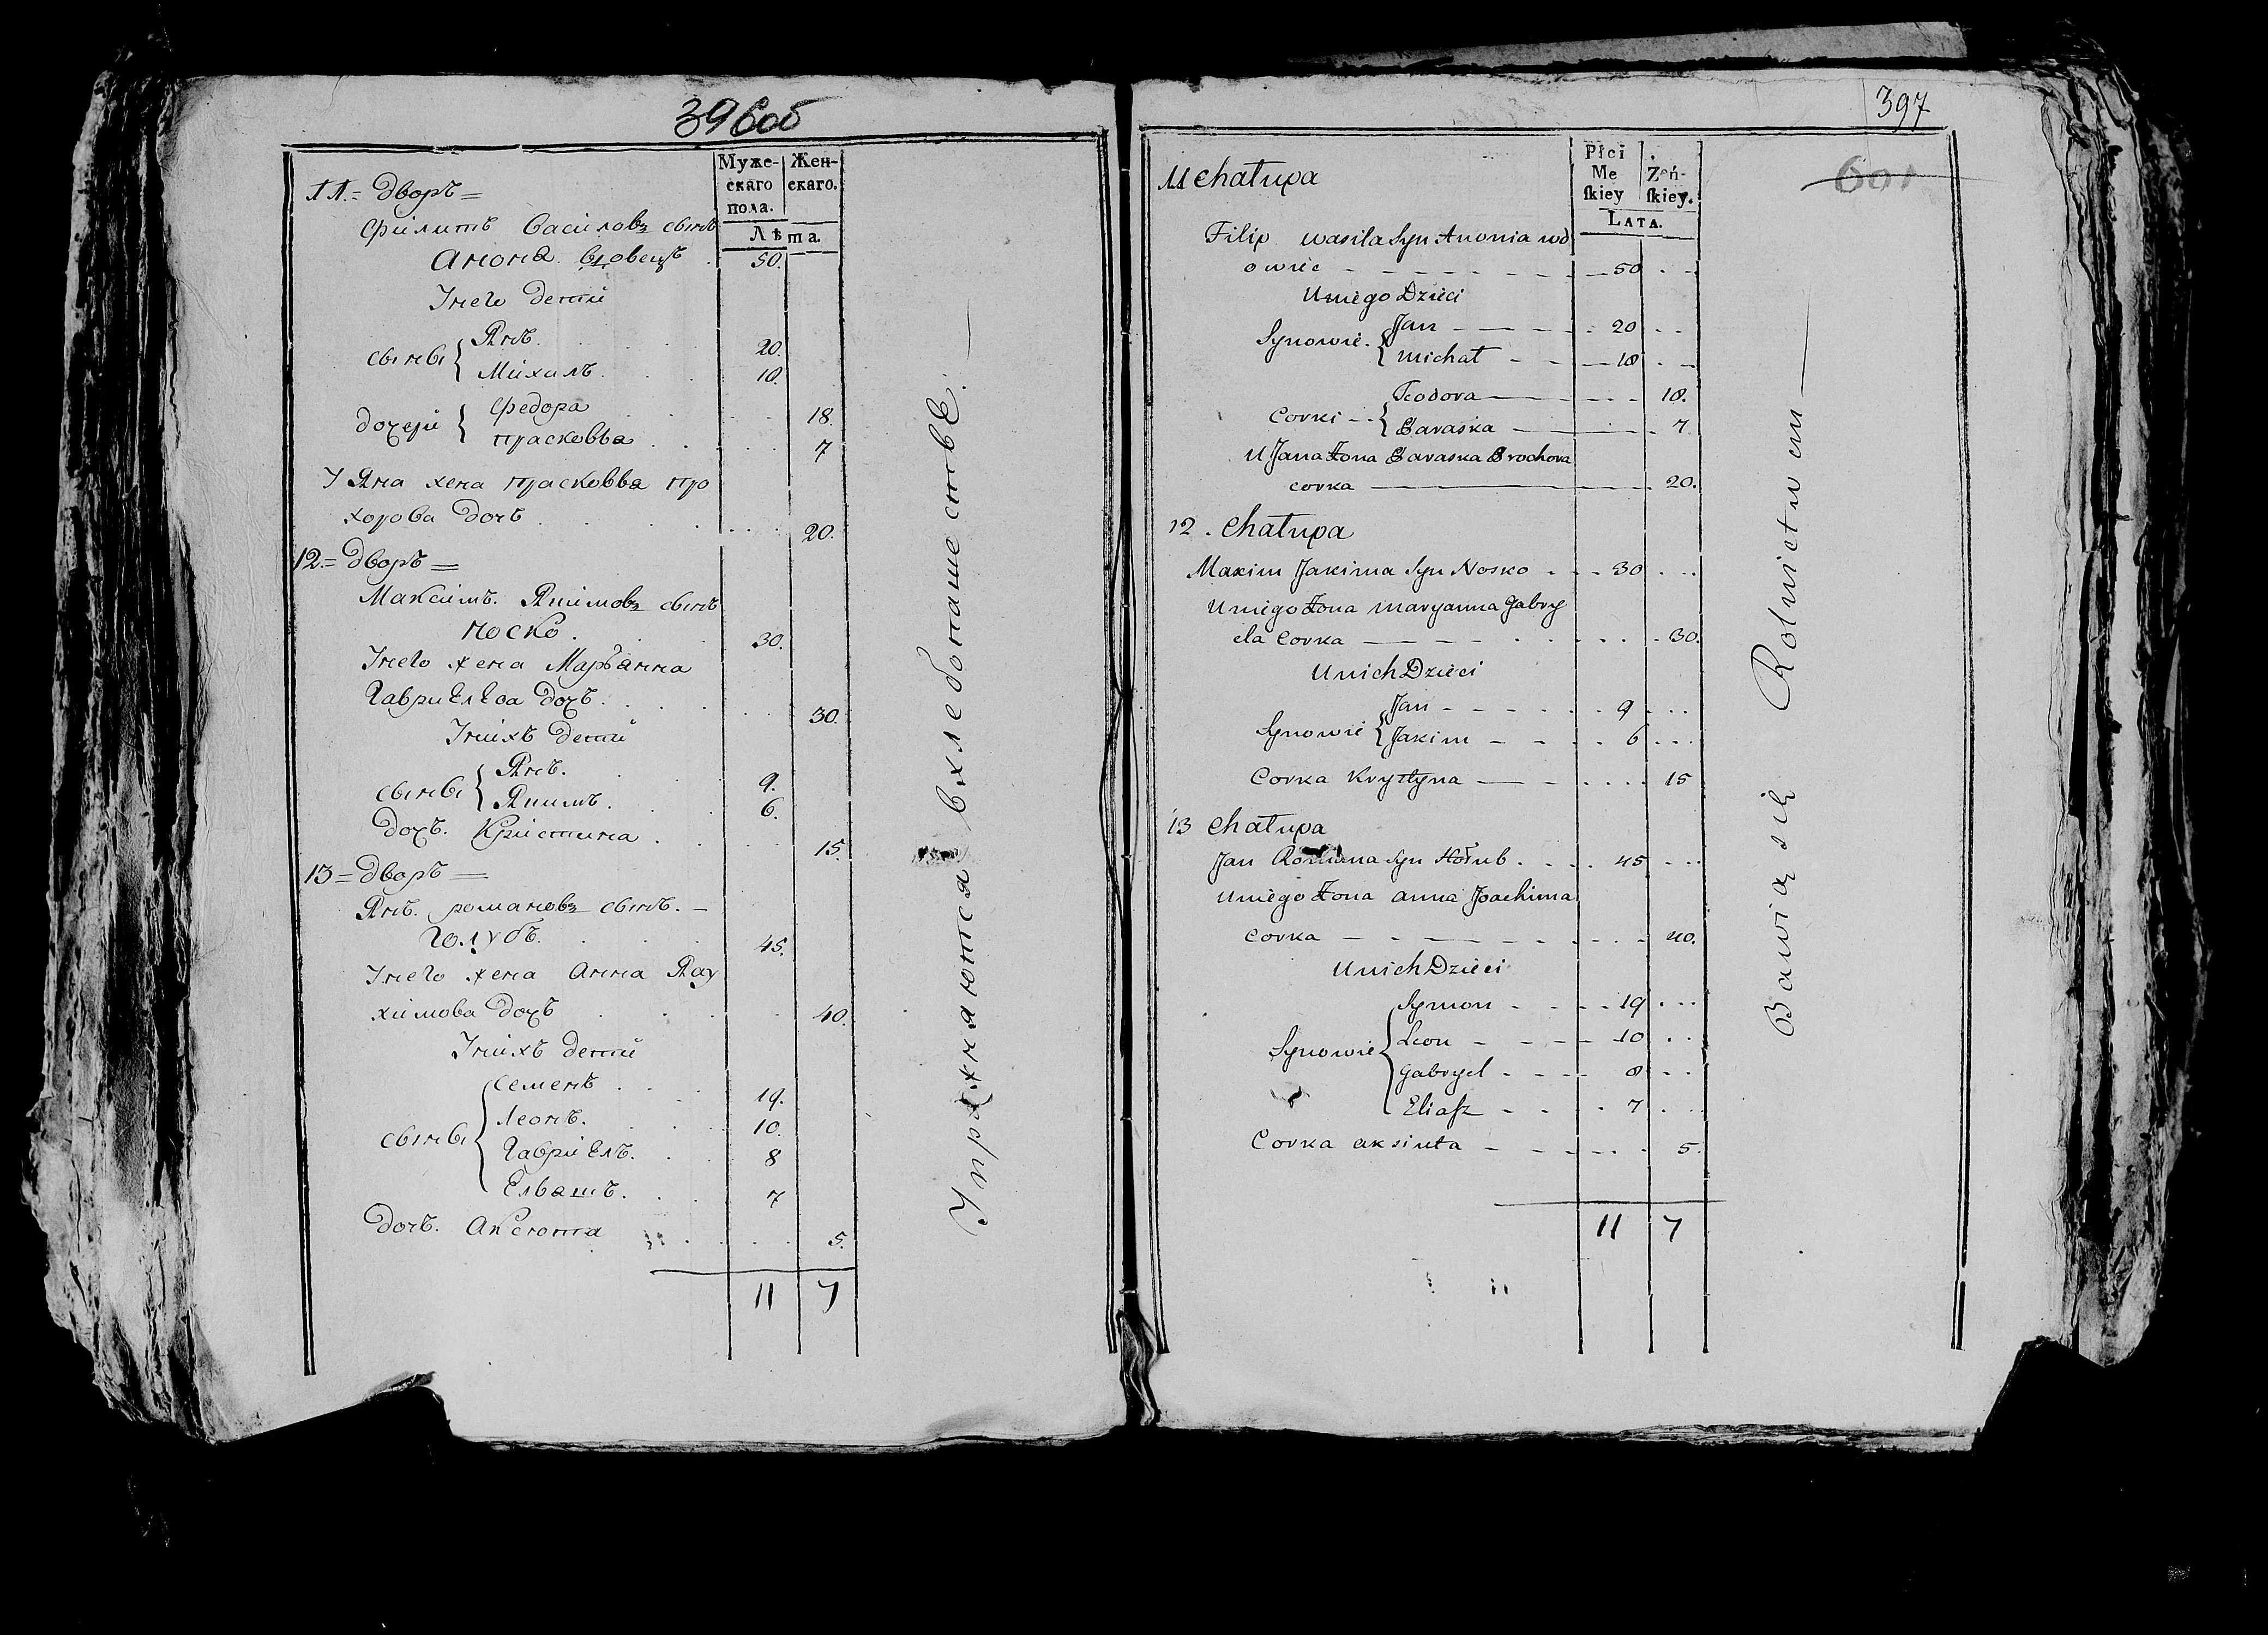 396 об
Муже- Жен-
скаго скаго.
пола.
Лѣта.
11.= дворъ=
Филипъ Василовъ сынъ
Анона вдовецъ . 50.
Унего дети
сыны { Янъ. 20.
Михалъ. 10.
дочери { Федора 18.
Прасковья 7
У Яна жена Прасковья Про
хорова дочь 20.
12.= дворъ=
Максимъ. Якимовъ сынъ
Носко. 30.
Унего жена Марьянна
Гавриелева дочь. 30.
Унихъ дети
сыны { Янъ. 9.
Якимъ. 6.
дочь. Кристина. 15.
13= дворъ=
Янъ. Романовъ сынъ. -
Голубъ. 45.
Унего жена Анна Яау
химова дочь 40.
Унихъ дети
Семенъ 19.
сыны { Леонъ. 10.
Гавриелъ. 8
Ельашъ. 7
дочь. Аксюта 5.
11 7
Упражняются в хлебопашестве.
397
601
Płci
Me Żeń-
ſkiey ſkiey.
LATA.
11 Chałupa
Filip wasila Syn Anonia wd
owiec 50
Uniego Dzieci
Synowie { Jan 20
Michał 10
Corki { Teodora 18.
Paraska 7
U Jana Żona Paraska Prochora
corka 20.
12. Chałupa
Maxim Jakima Syn Nosko 30
Uniego Żona Maryanna Gabry
ela Corka 30.
Unich Dzieci
Synowie { Jan 9
Jakim 6
Corka Krystyna 15
13 Chałupa
Jan Romana Syn Hołub 45
Uniego Żona Anna Joachima
Corka 40.
Unich Dzieci
Symon 19
Synowie { Leon 10
Gabryel 8
Eliaſz 7
Corka aksiuta 5.
11 7
Bawią się Rolnictwem